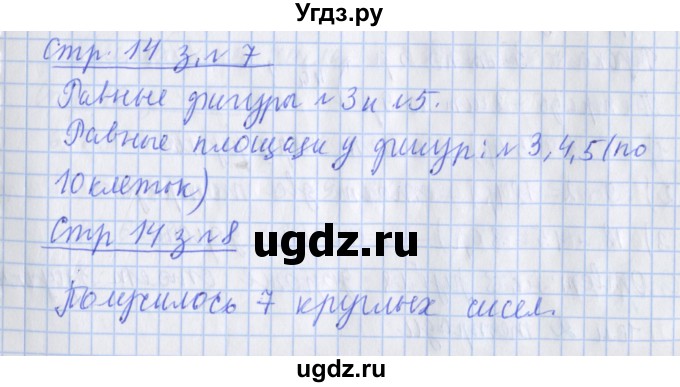 Угдз.ру
Стр. 14 з. № 7
Равные фигуры № 3 и № 5.
Равные площади у фигур: № 3, 4, 5 (по
10 клеток)
Стр 14 з № 8
ugdz.ru
Получилось 7 круглых чисел.
ugdz.ru